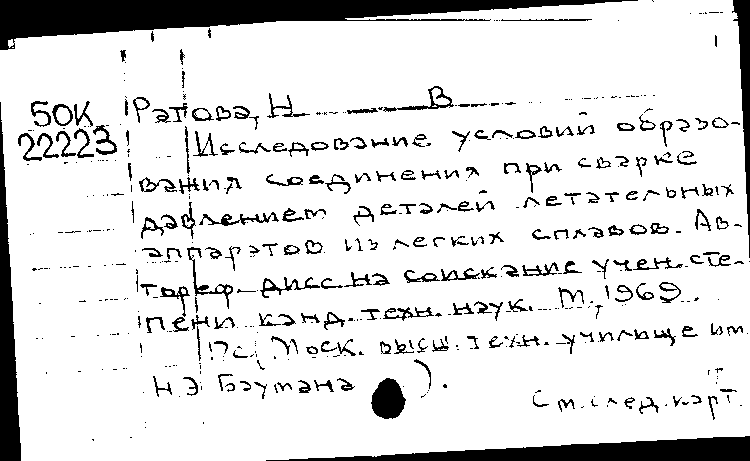 50К Ратова, Н В
22223 Исследование условий образо-
вания соединения при сварке
давлением деталей летательных
аппаратов из легких сплавов. Ав-
тореф. дисс. на соискание учен. сте-
пени канд. техн. наук. М., 1969.
17с (Моск. высш. техн. училище им
Н.Э Баумана ).
См. след. карт.